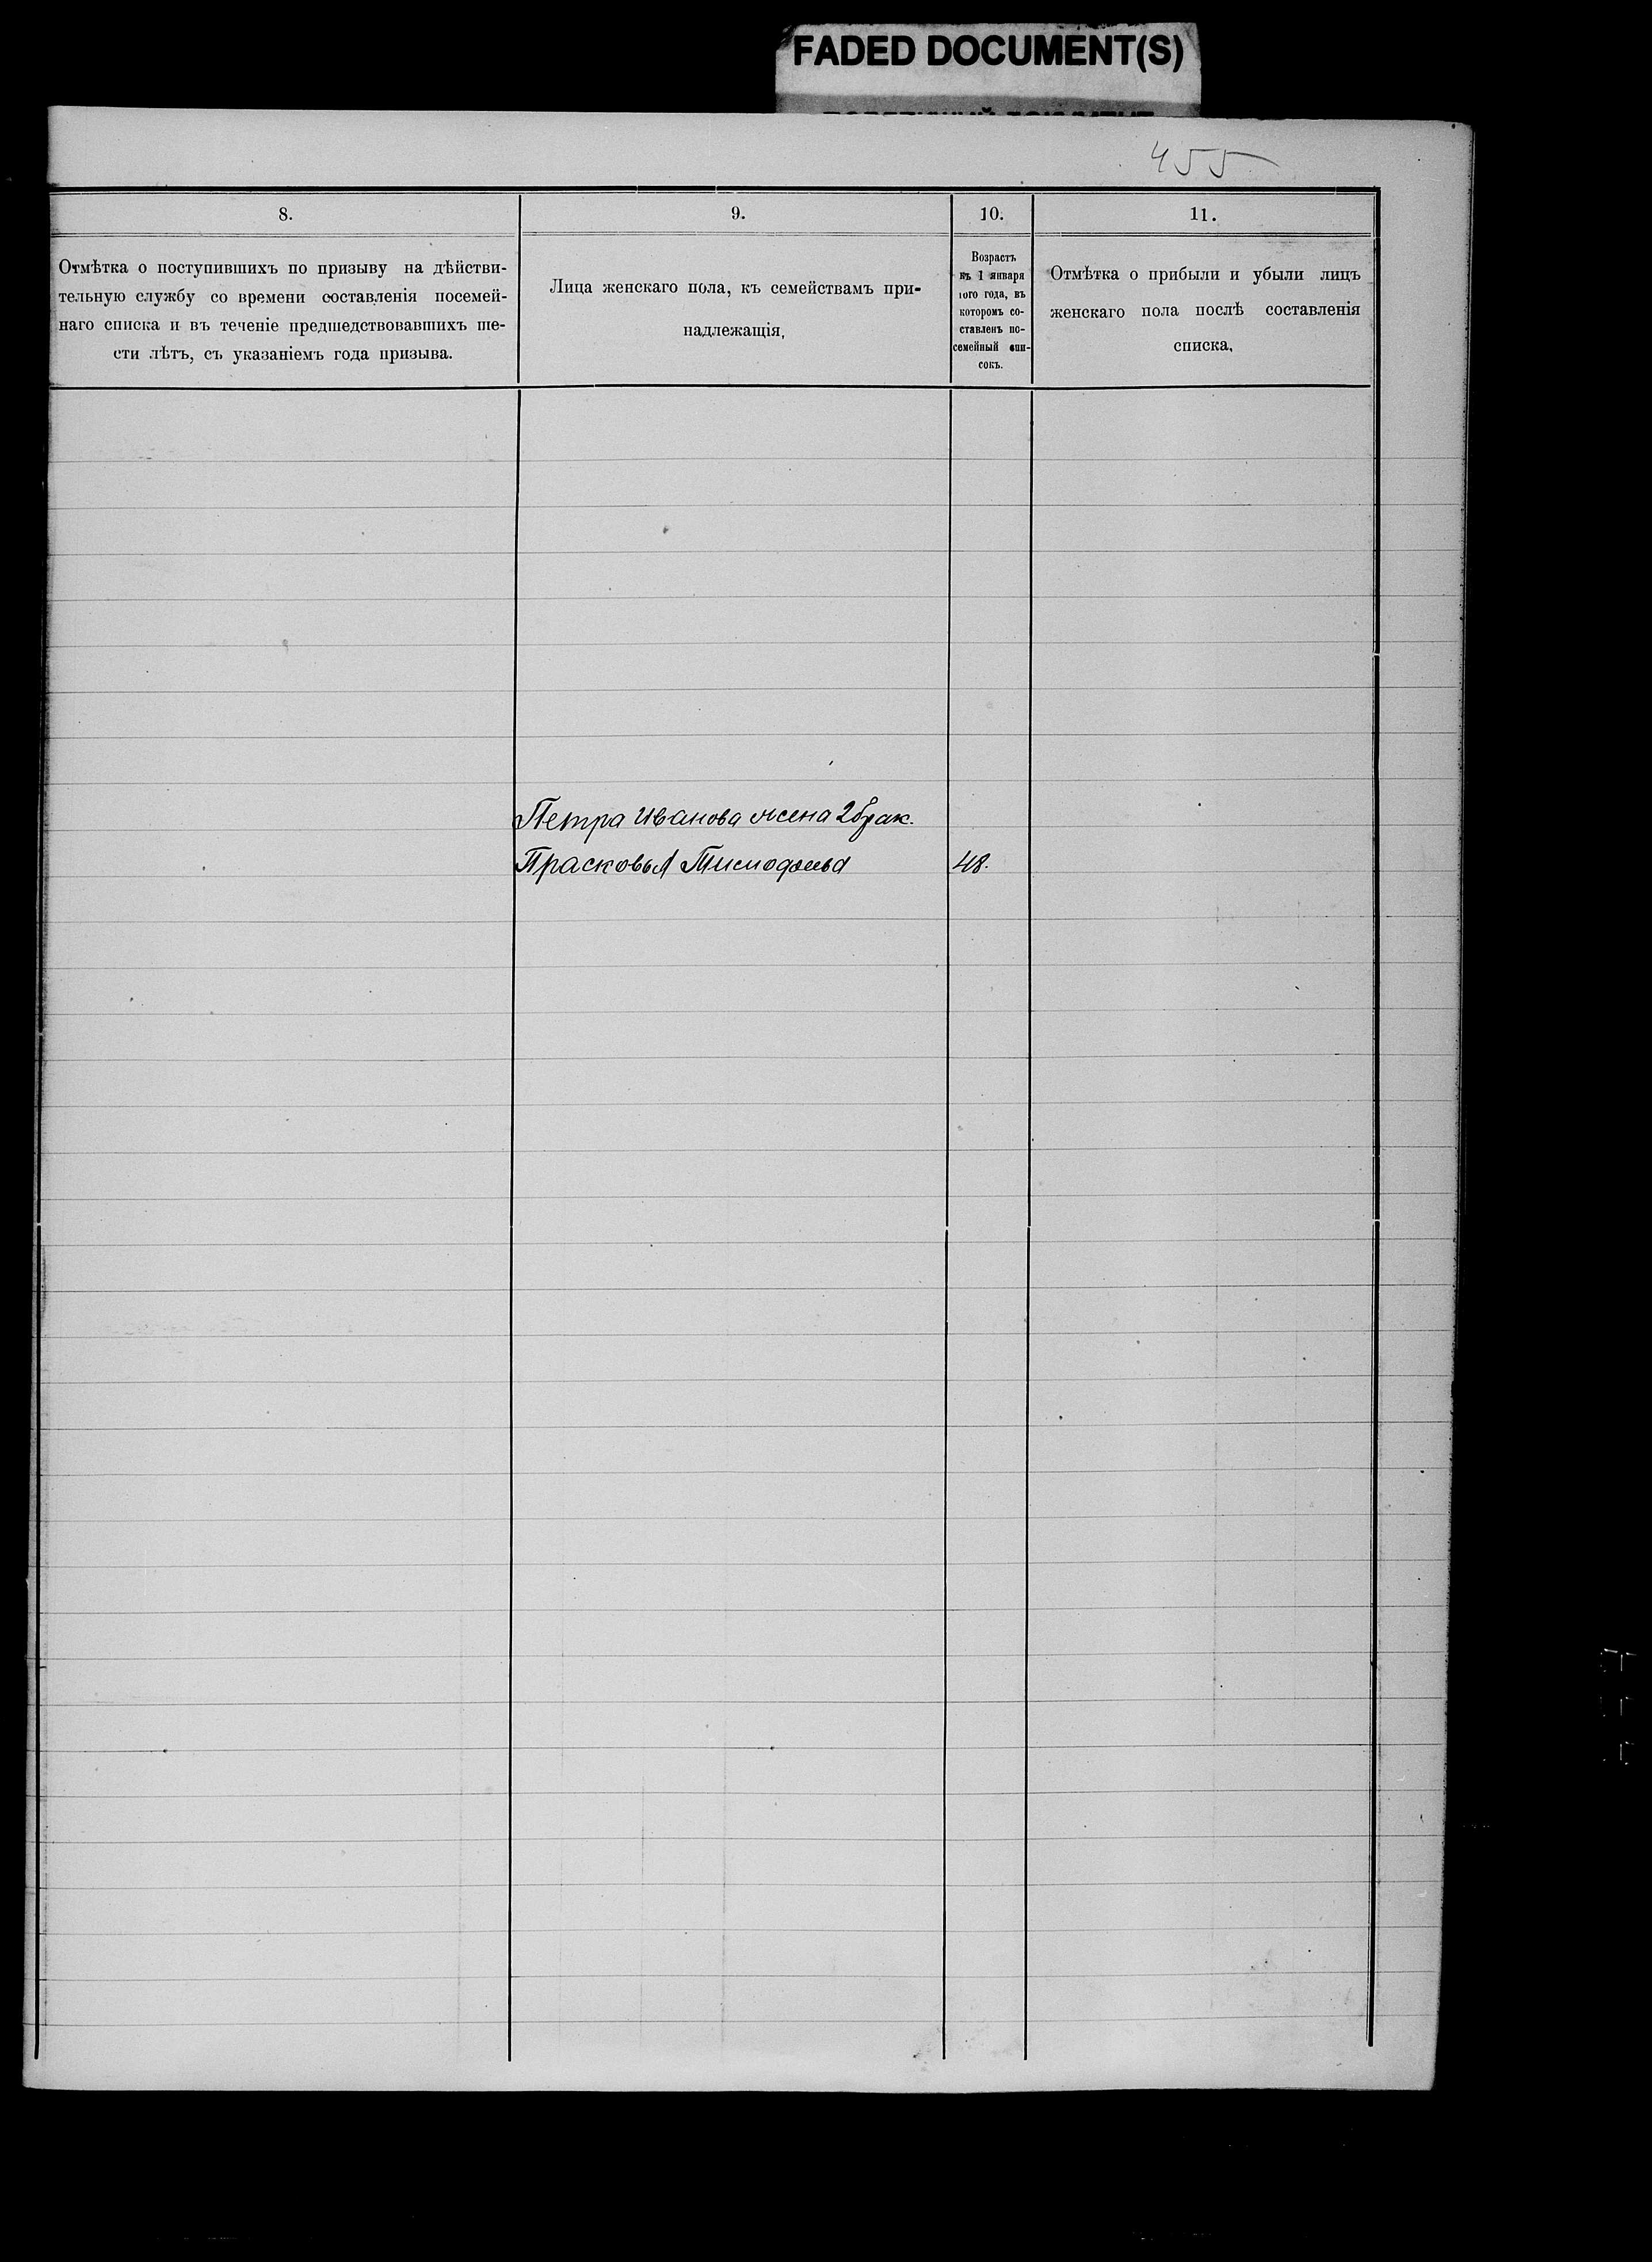 FADED DOCUMENT(S)
455
8.
9.
10.
11.
Отмѣтка о поступившихъ по призыву на дѣйстви-
тельную службу со времени составленія посемей-
наго списка и въ теченіе предшедствовавшихъ ше-
сти лѣтъ, съ указаніемъ года призыва.
Лица женскаго пола, къ семействамъ при-
надлежащія,
Возрастъ
къ 1 января
того года, въ
которомъ со-
ставленъ по-
семейный спи-
сокъ.
Отмѣтка о прибыли и убыли лицъ
женскаго пола послѣ составленія
списка,
Петра Иванова жена 2 брак.
Прасковья Тимофѣева
48.